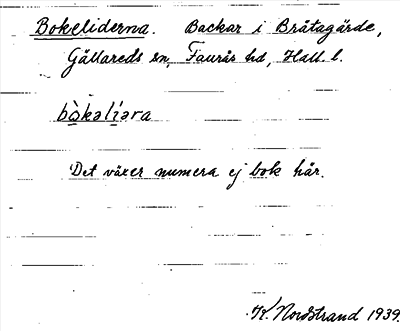 Bokeliderna. Backar i Bråtagärde,
Gällareds sn, Faurås hd, Hall. l.
bòkəlíəra
Det växer numera ej bok här.
K. Nordstrand 1939.